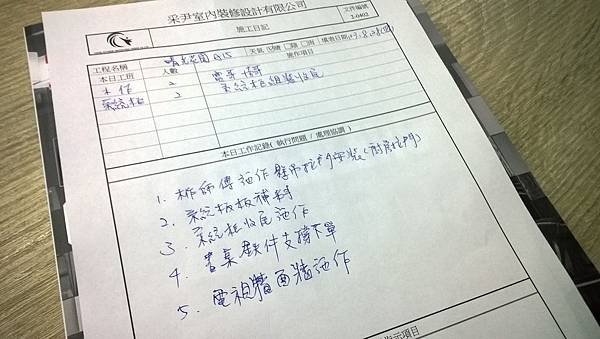 采尹室內裝修設計有限公司
施工日記
文件編號
2-0402
工程名稱 晴光花園 A15 天氣 晴 陰 雨 填寫日期
本日工班 人數 施作項目
木作 2
系統板 2 系統板組裝收尾
本日工作記錄( 執行問題 / 處理協調 )
1. 林師傅施作懸吊拉門安裝(廚房拉門)
2. 系統板板補料
3. 系統柜收尾施作
4. 書桌鐵件支撐下單
5. 電視牆面牆施作
指示項目